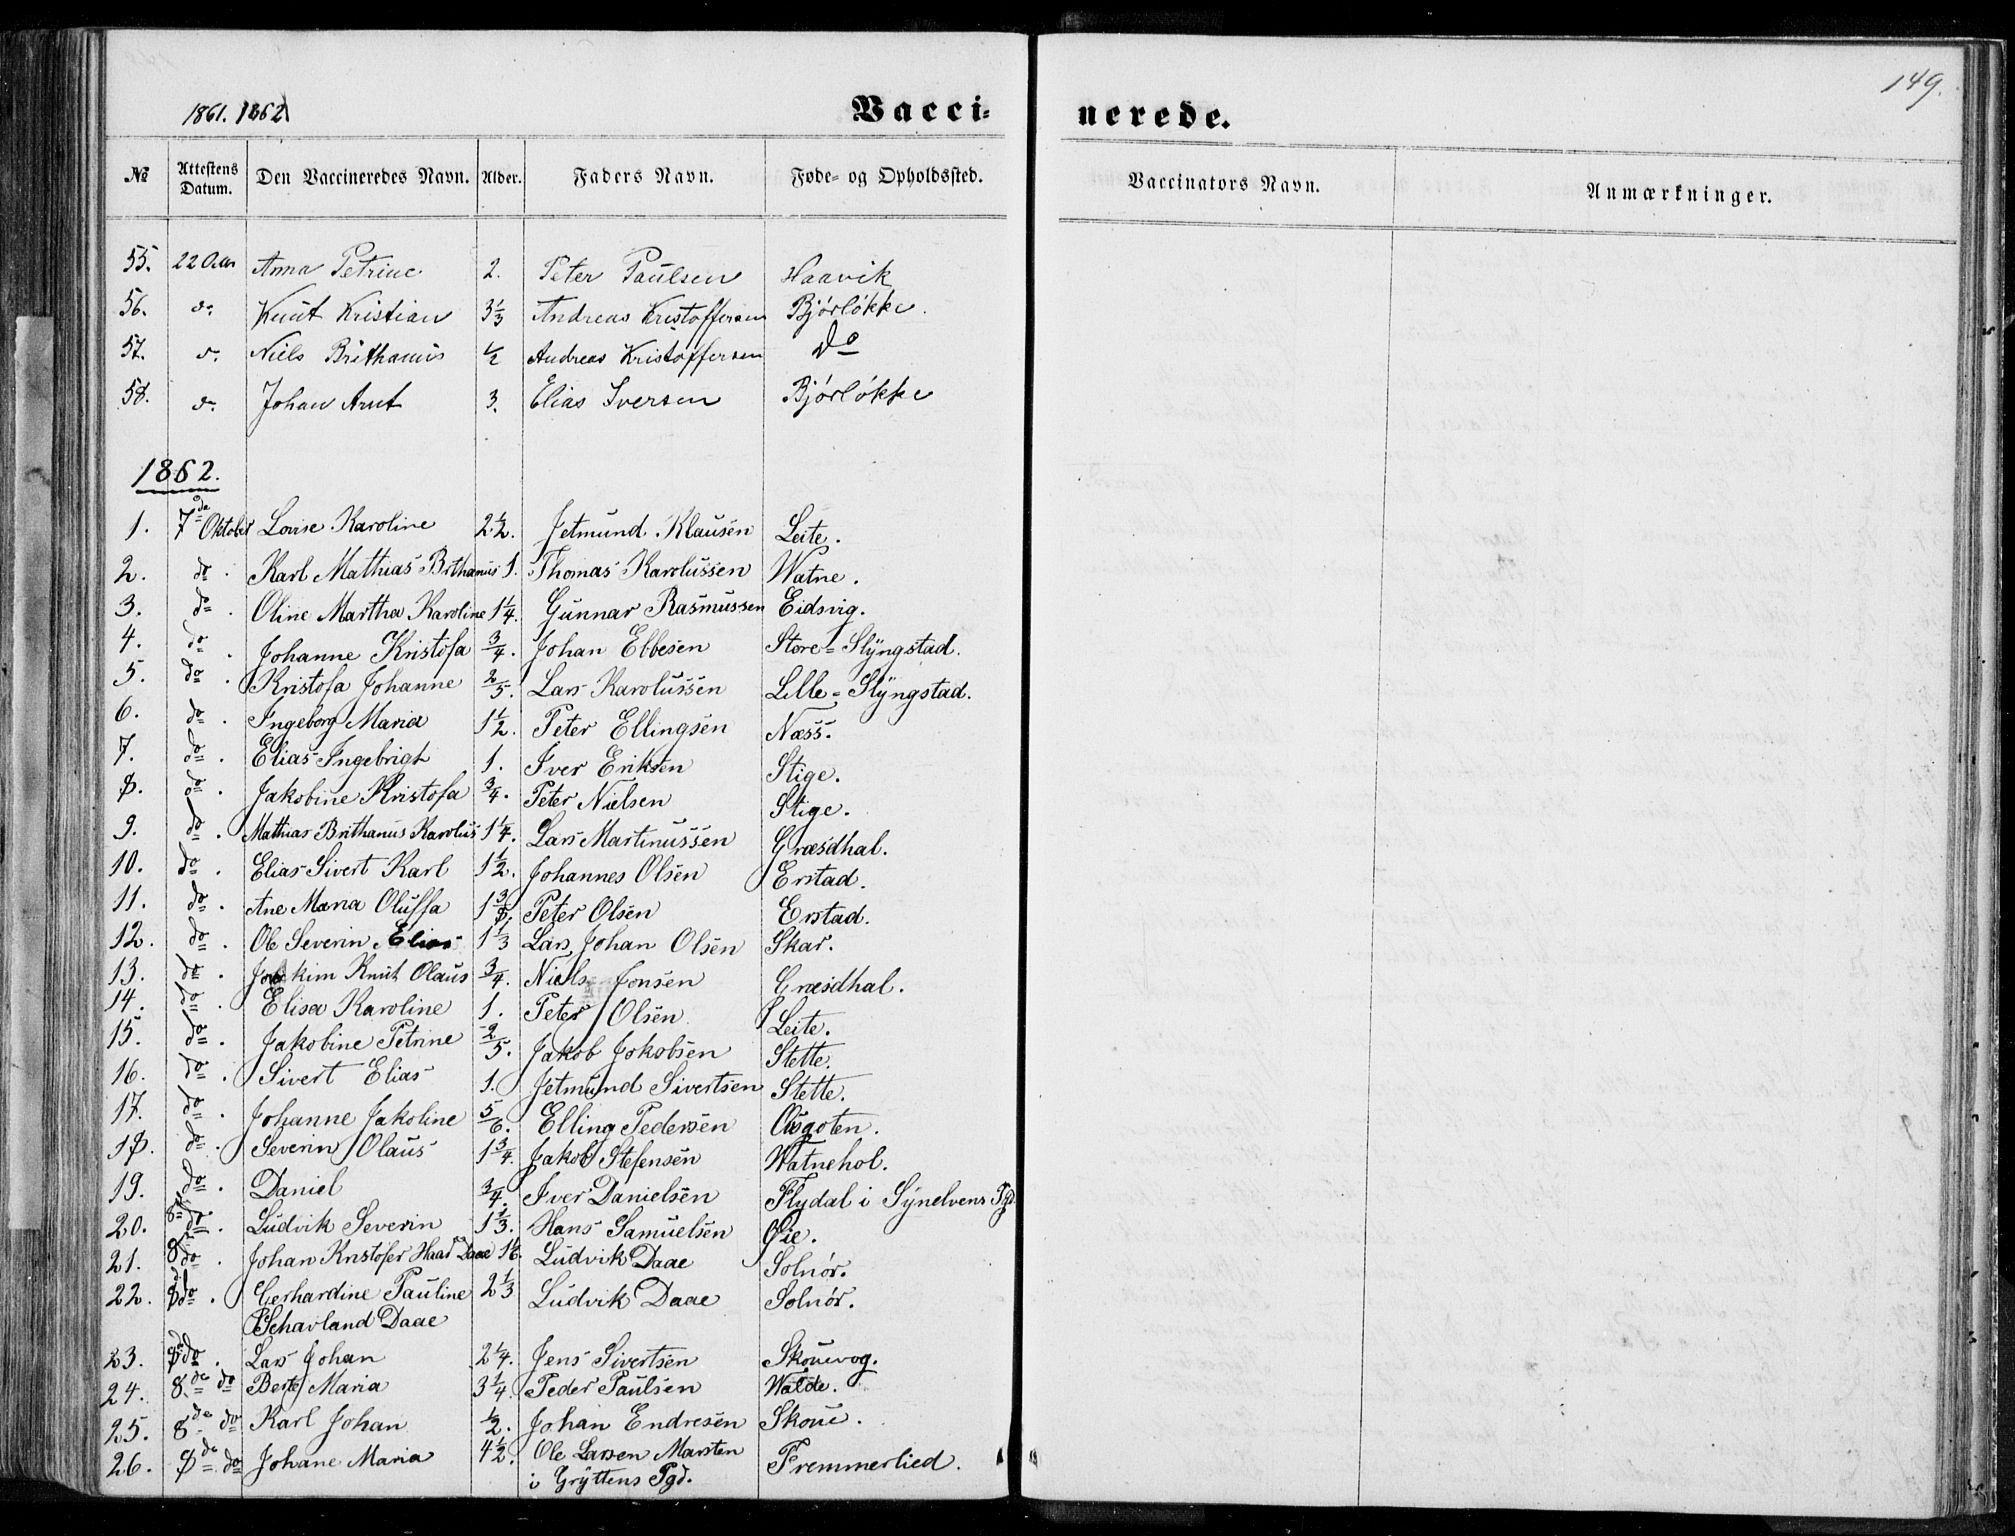 149.
1861. 1862
Vacci- nerede.
No Attestens Datum. Den Vaccineredes Navn. Alder. Faders Navn. Føde- og Opholdssted. Vaccinators Navn. Anmærkninger.
55. 22 Anna Petrine 2. Peter Paulsen Haavik
56. do Knut Kristian 3 1/3 Andreas Kristoffersen Bjørløkke.
57. d. Niels Brithanus 1/2 Andreas Kristoffersen Do
58. d. Johan Arnt 3. Elias Iversen Bjørløkke
1862.
1. 7de Oktober Lovise Karoline 2 1/2. Jetmund Klausen Leite.
2. do. Karl Mathias Brithanus 1. Thomas Karolussen Watne.
3. do. Oline Martha Karoline 1 1/4. Gunnar Rasmussen Eidsvig.
4. do. Johanne Kristofa 3/4. Johan Ebbesen Store-Slyngstad.
5. do. Kristofa Johanne 2/5. Lars Karolussen Lille-Slyngstad.
6. do. Ingeborg Maria 1 1/2. Peter Ellingsen Næss.
7. do. Elias Ingebrigt 1. Iver Eriksen Stige.
8. do. Jakobine Kristofa 3/4. Peter Nielsen Stige.
9. do. Mathias Brithanus Karolus 1 1/4. Lars Martinussen Græsdhal.
10. do. Elias Sivert Karl 1 1/2. Johannes Olsen Erstad.
11. do. Ane Maria Oluffa 1 3/8. Peter Olsen Erstad.
12. do. Ole Severin Elias 1 1/3 Lars Johan Olsen Skar.
13. do. Joakim Knut Olaus 3/4. Niels Jonsen Græsdhal.
14. do. Elisa Karoline 1. Peter Olsen Leite.
15. do. Jakobine Petrine 2/5. Jakob Jokobsen Stette.
16. do. Sivert Elias 1. Jetmund Sivertsen Stette.
17. do. Johanne Jakoline 5/6. Elling Pedersen Osgoten.
18. do. Severin Olaus 1 3/4. Jakob Stefensen Watnehol.
19. do. Daniel 3/4. Iver Danielsen Flydal i Synelvens Pgd.
20. 8de do. Ludvik Severin 1 1/3. Hans Samuelsen Øie.
21. 8de do. Johan Kristofer Haar Daae 1 1/6. Ludvik Daae Solnør.
22. 8de do. Gerhardine Pauline 2 1/3 Ludvik Daae Solnør.
Schavland Daae
23. 8de do. Lars Johan 2 1/4. Jens Sivertsen Skouevog.
24. 8de do Berte Maria 3 1/4. Peder Paulsen Walde.
25. 8de do Karl Johan 1/2. Johan Endresen Skoue.
26. 8de do Johane Maria 4 1/2. Ole Larsen Marsten Fremmerlied.
i Gryttens Pgd.